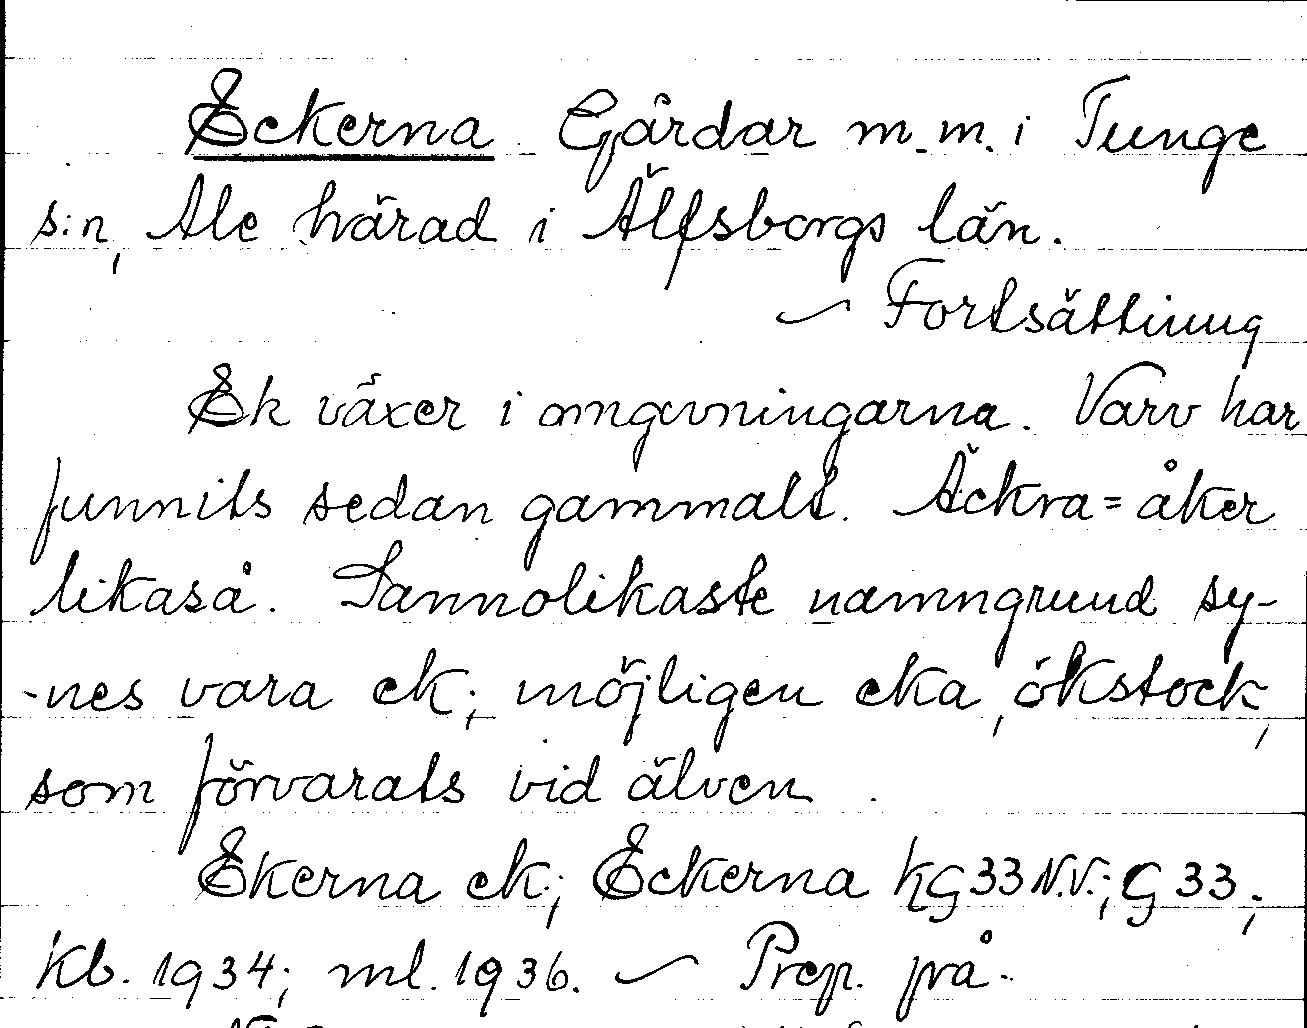 Eckerna Gårdar m.m. i Tunge
s:n, Ale härad i Älfsborgs län.
~ Fortsättning
Ek växer i omgivningarna. Varv har
funnits sedan gammalt. Äckra = åker
likaså. Sannolikaste namngrund sy-
-nes vara ek; möjligen eka, ökstock,
som förvarats vid älven.
Ekerna ek; Eckerna kG33 N.V.; G 33;
Kb. 1934; ml. 1936. ~ Prep. på.